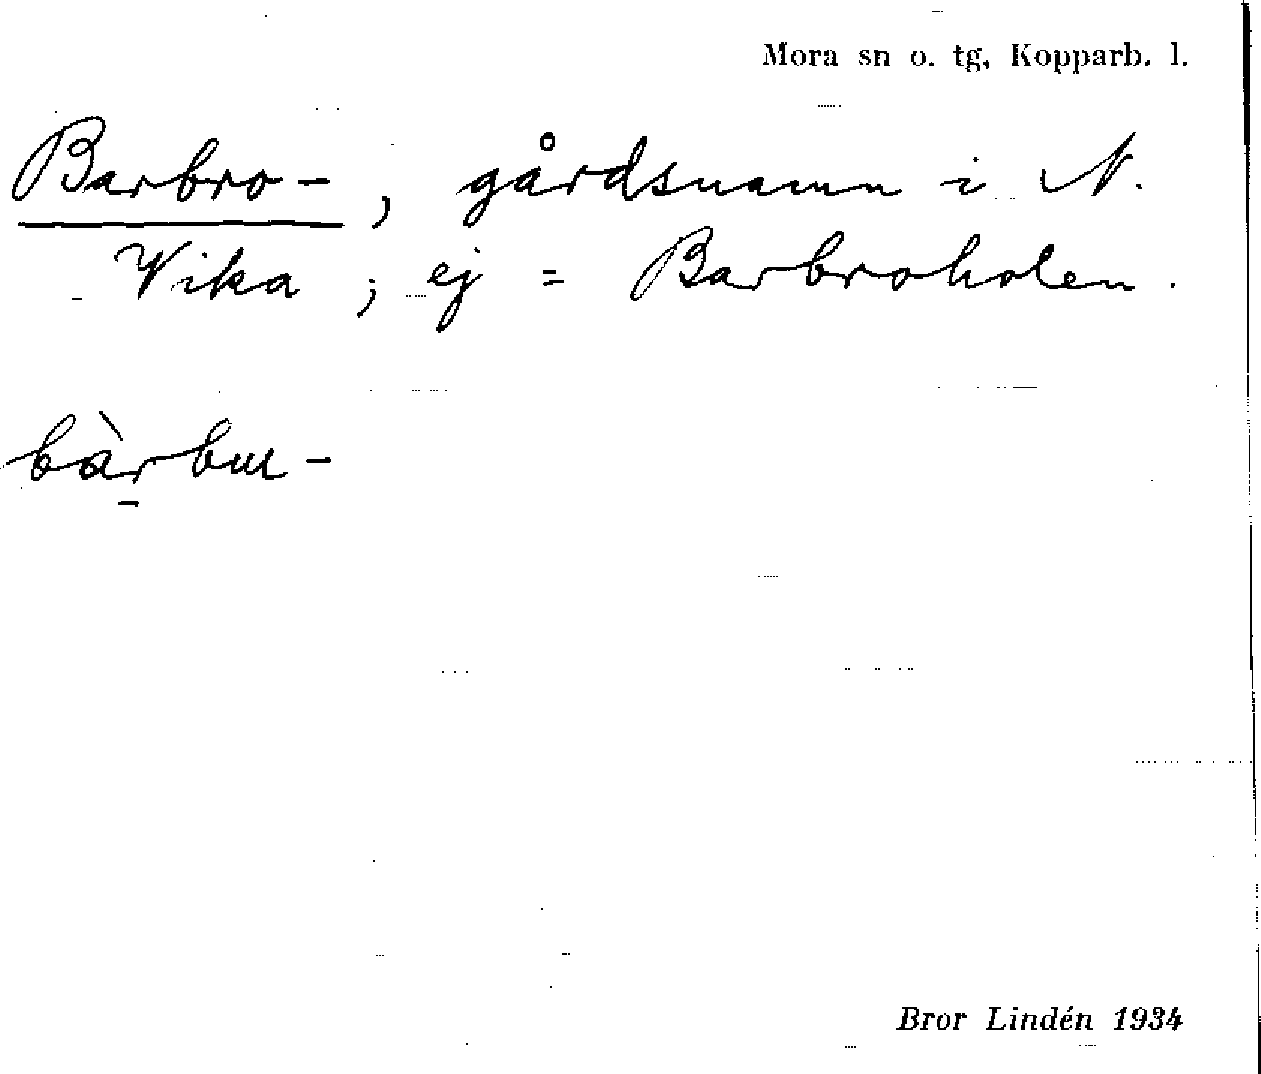 Mora sn o. tg, Kopparb. l.
Barbro-, gårdsnamn i N.
Vika ; ej = Barbroholen.
bàrbu-
Bror Lindén 1934